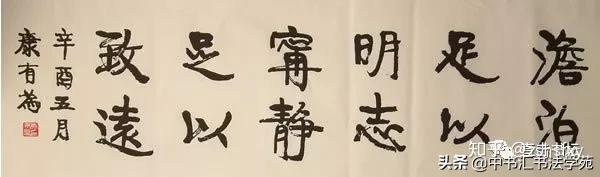 澹泊
足以
明志
甯静
足以
致遠
辛酉五月
康有為
知乎
头条 @中书汇书法学苑